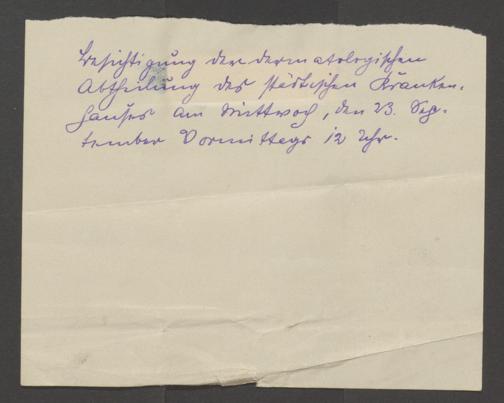 Besichtigung der dermatologischen
Abtheilung des städtischen Kranken-
hauses am Mittwoch, den 23. Sep-
tember Vormittags 12 Uhr.